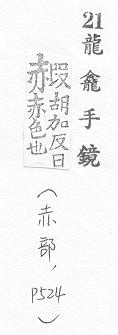 21龍龕手鏡
赮胡加反日
赤色也
（赤部，P524）